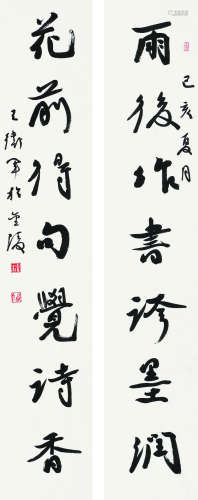 雨後作書誇墨潤
己亥夏月
花前得句覺詩香
王衛軍於金陵